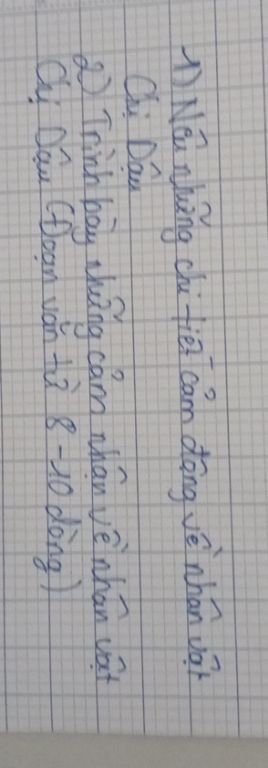 1) Nêu những chi tiết cảm động về nhân vật
Chị Dậu
2) Trình bày những cảm nhận về nhân vật
Chị Dậu (Đoạn văn từ 8-10 dòng)